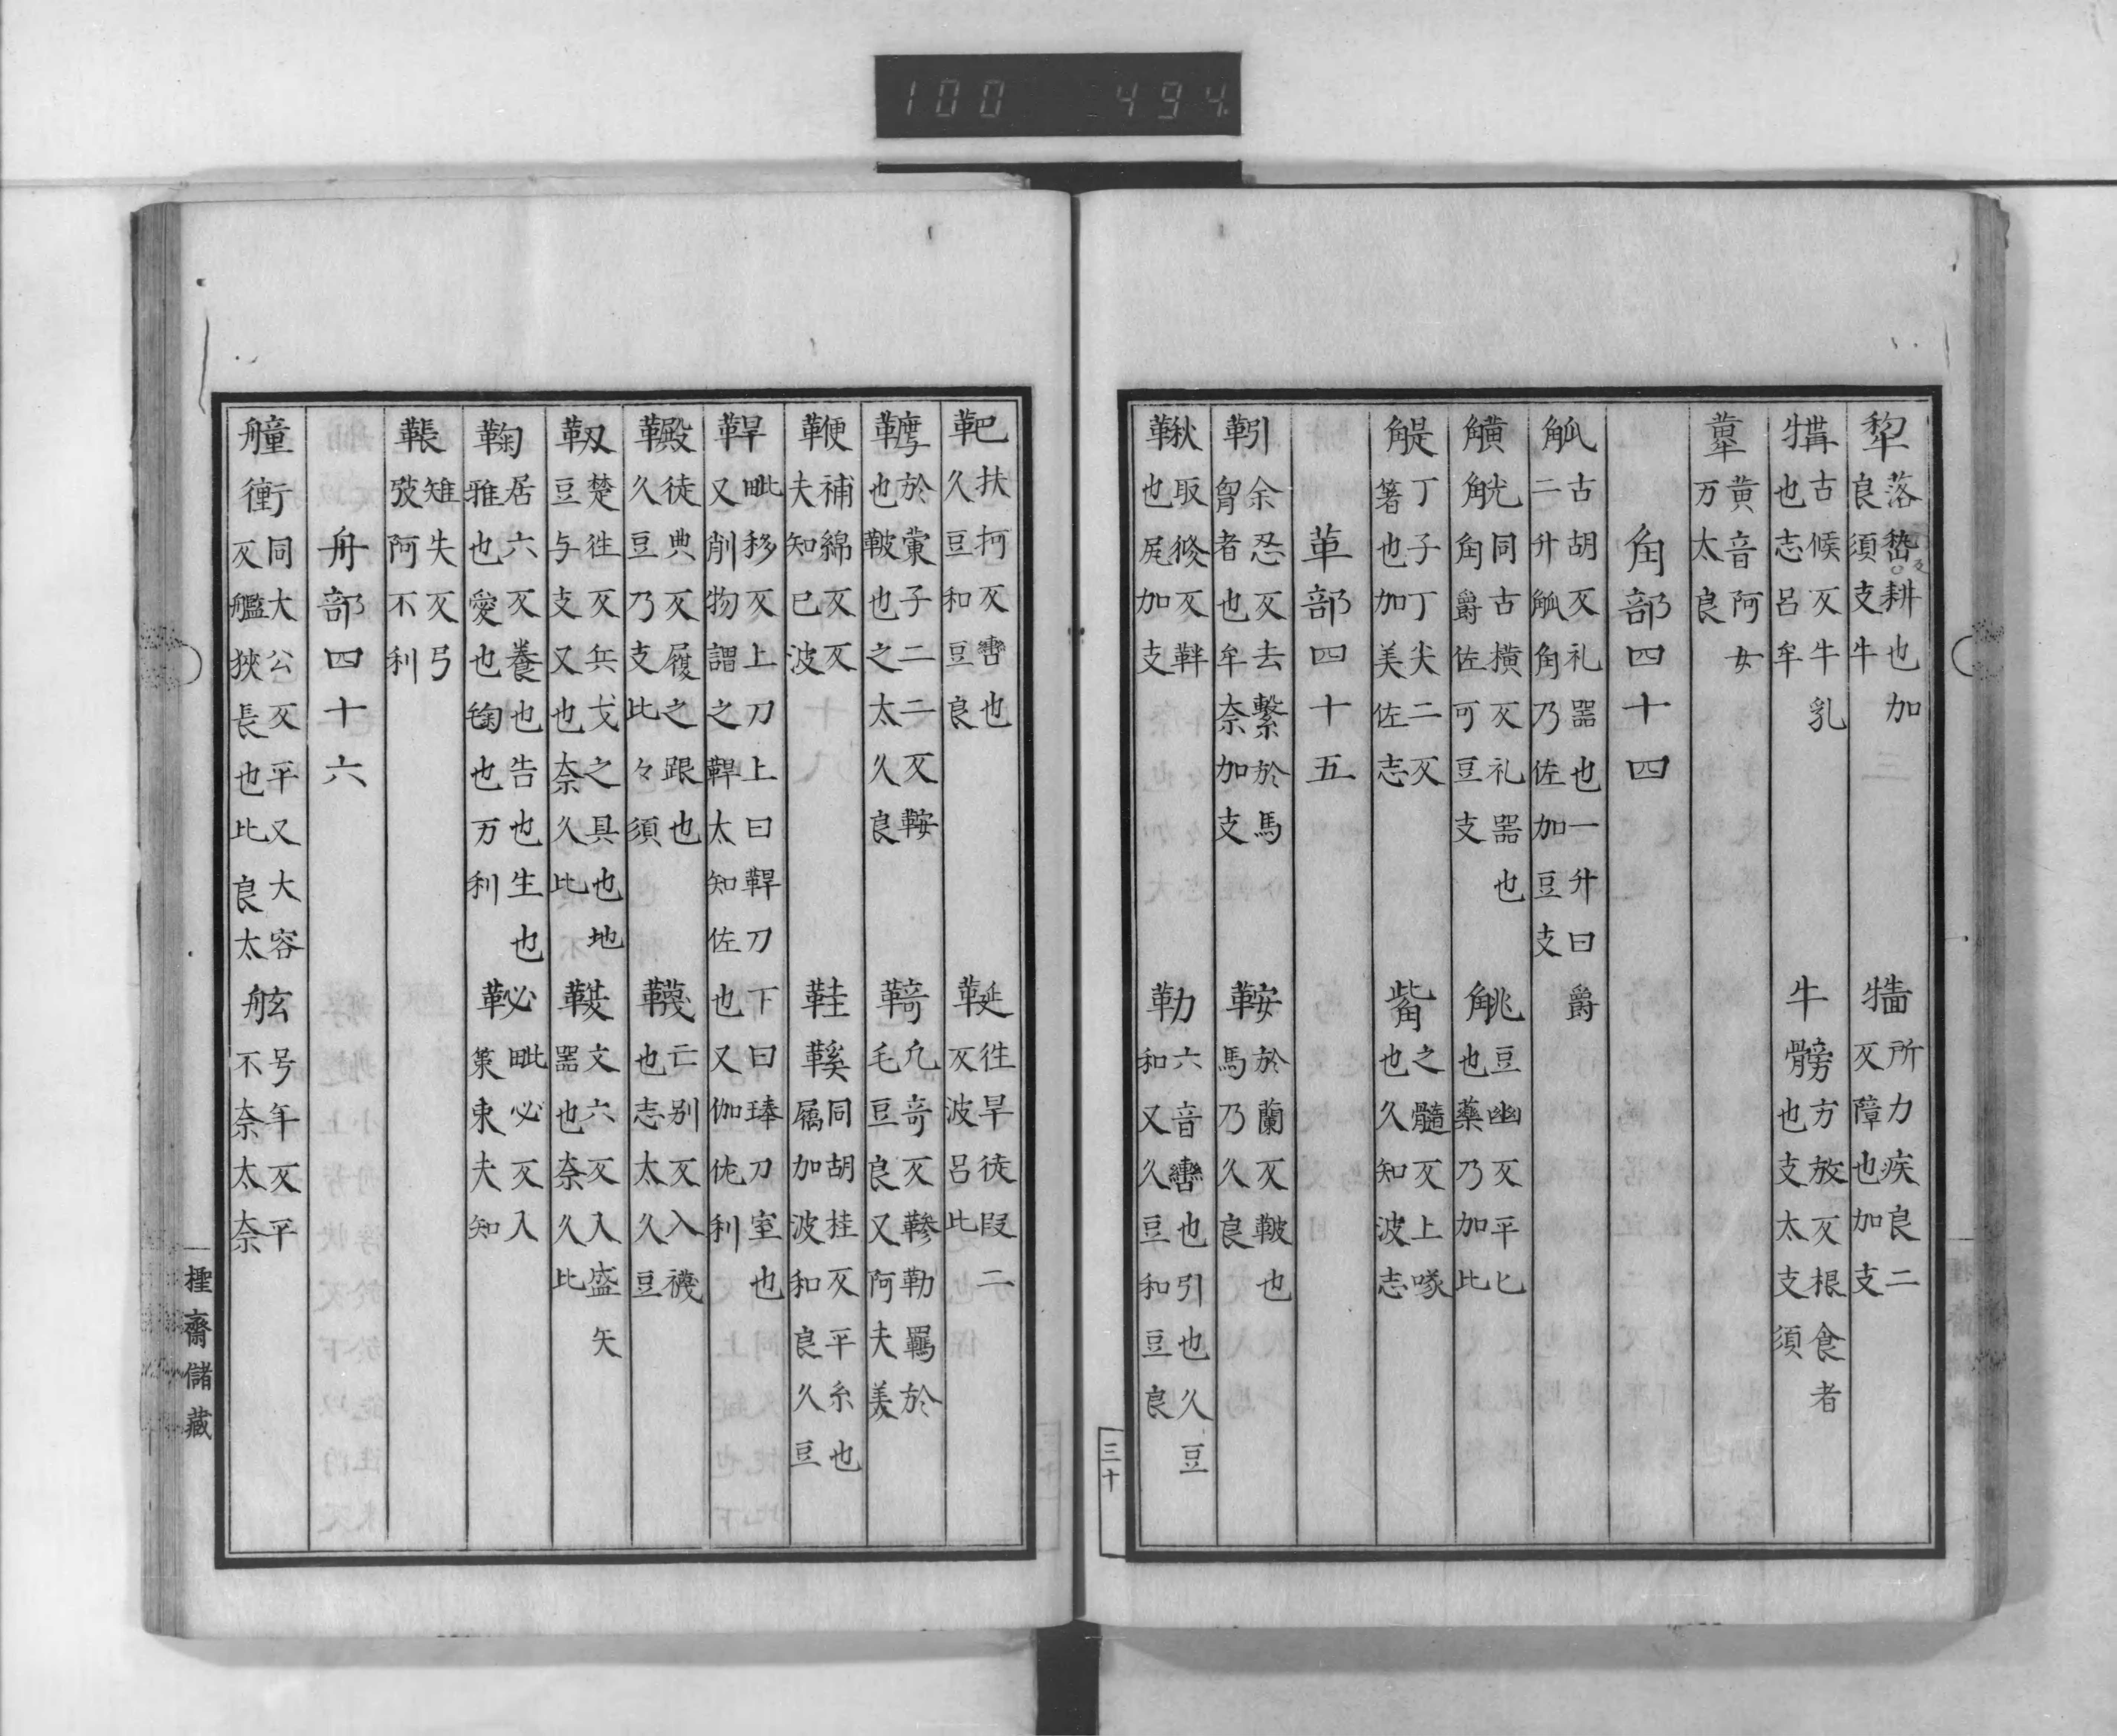 100 494
犂 落嵆反耕也加良須支牛 𤚊 所力疾良二反障也加支
㹃 古候反牛乳也志呂牟 牛䯋 方放反根食者也支太支須
䕤 黄音阿女万太良
角部四十四
觚 古胡反礼器也一升曰爵二升觚角乃佐加豆支
觵 觥 同古横反礼器也角爵佐可豆支 䚱 豆幽反平匕也藥乃加比
䚣 丁子丁尖二反箸也加美佐志 觜 之髓反上喙也久知波志
革部四十五
靷 余忍反去繫於馬胷者也牟奈加支 鞍 於蘭反鞁也馬乃久良
鞦 取俊反靽也尻加支 勒 六音轡也引也久豆和又久豆和豆良
三十
靶 扶柯反轡也久豆和豆良 䩥 徃旱徒段二反波呂比
䪀 於黨子二二反鞍也鞁也之太久良 䩭 九奇反鞶勒羈於毛豆良又阿夫美
鞭 補綿反反夫知已波 鞋 鞵 同胡桂反平糸也属加波和良久豆
鞞 毗移反上刀上曰鞞刀下曰琫刀室也又削物謂之鞞太知佐也又伽佗利
䩱 徒典反履之跟也久豆乃支比々須 韈 亡别反入襪也志太久豆
靫 楚徃反兵戈之具也地豆与支又也奈久比 䩴 文六反入盛矢器也奈久比
鞠 居六反養也告也生也雅也愛也毱也万利 䩛 毗必反入策束夫知
韔 雉失反弓弢阿不利
舟部四十六
艟 衝 同大公反平又大容反艦狹長也比良太 舷 号年反平不奈太奈
𣝅齋儲藏